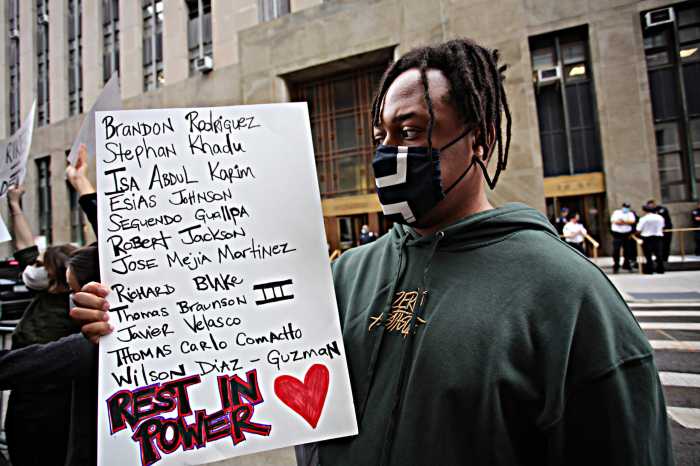 BRANDON RODRIGUEZ
STEPHAN KHADU
ISA ABDUL KARIM
ESIAS JOHNSON
SEGUENDO GUALLPA
ROBERT JACKSON
JOSE MEJIA MARTINEZ
RICHARD BLAKE
THOMAS BRAUNSON III
JAVIER VELASCO
THOMAS CARLO COMACHO
WILSON DIAZ - GUZMAN
REST IN
POWER